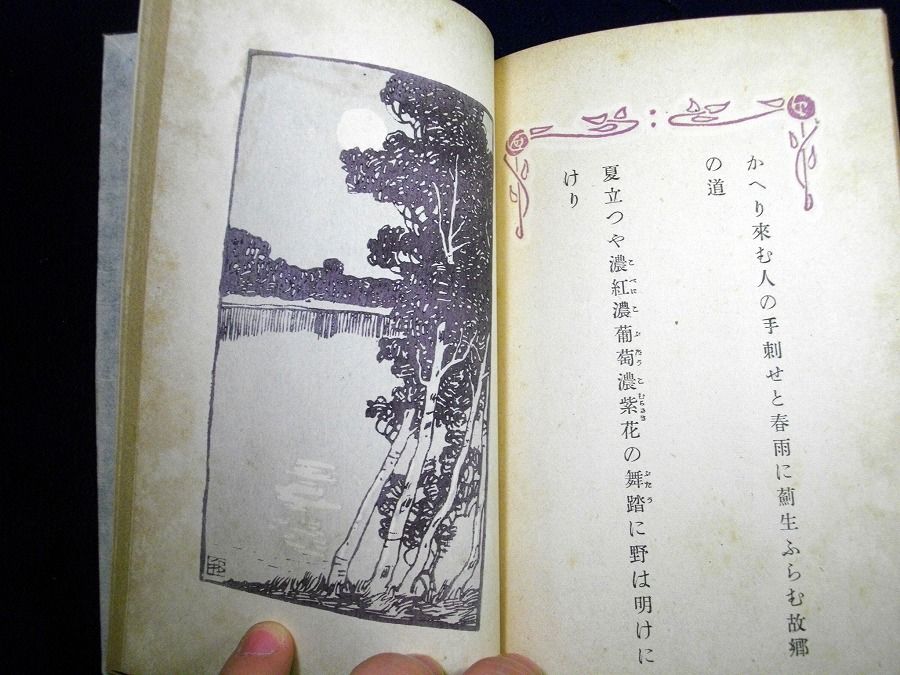 かへり來む人の手刺せと春雨に薊生ふらむ故郷
の道
夏立つや濃紅濃葡萄濃紫花の舞踏に野は明けに
けり